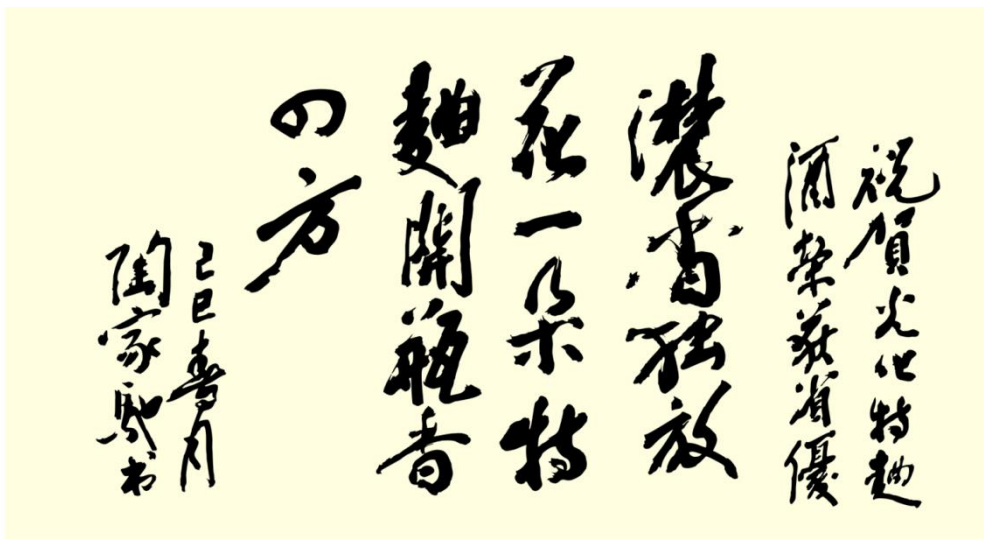 祝賀光化特麯
酒榮获省優
濃香独放
花一朵特
麯開瓶香
四方
己巳春月
陶家驰书